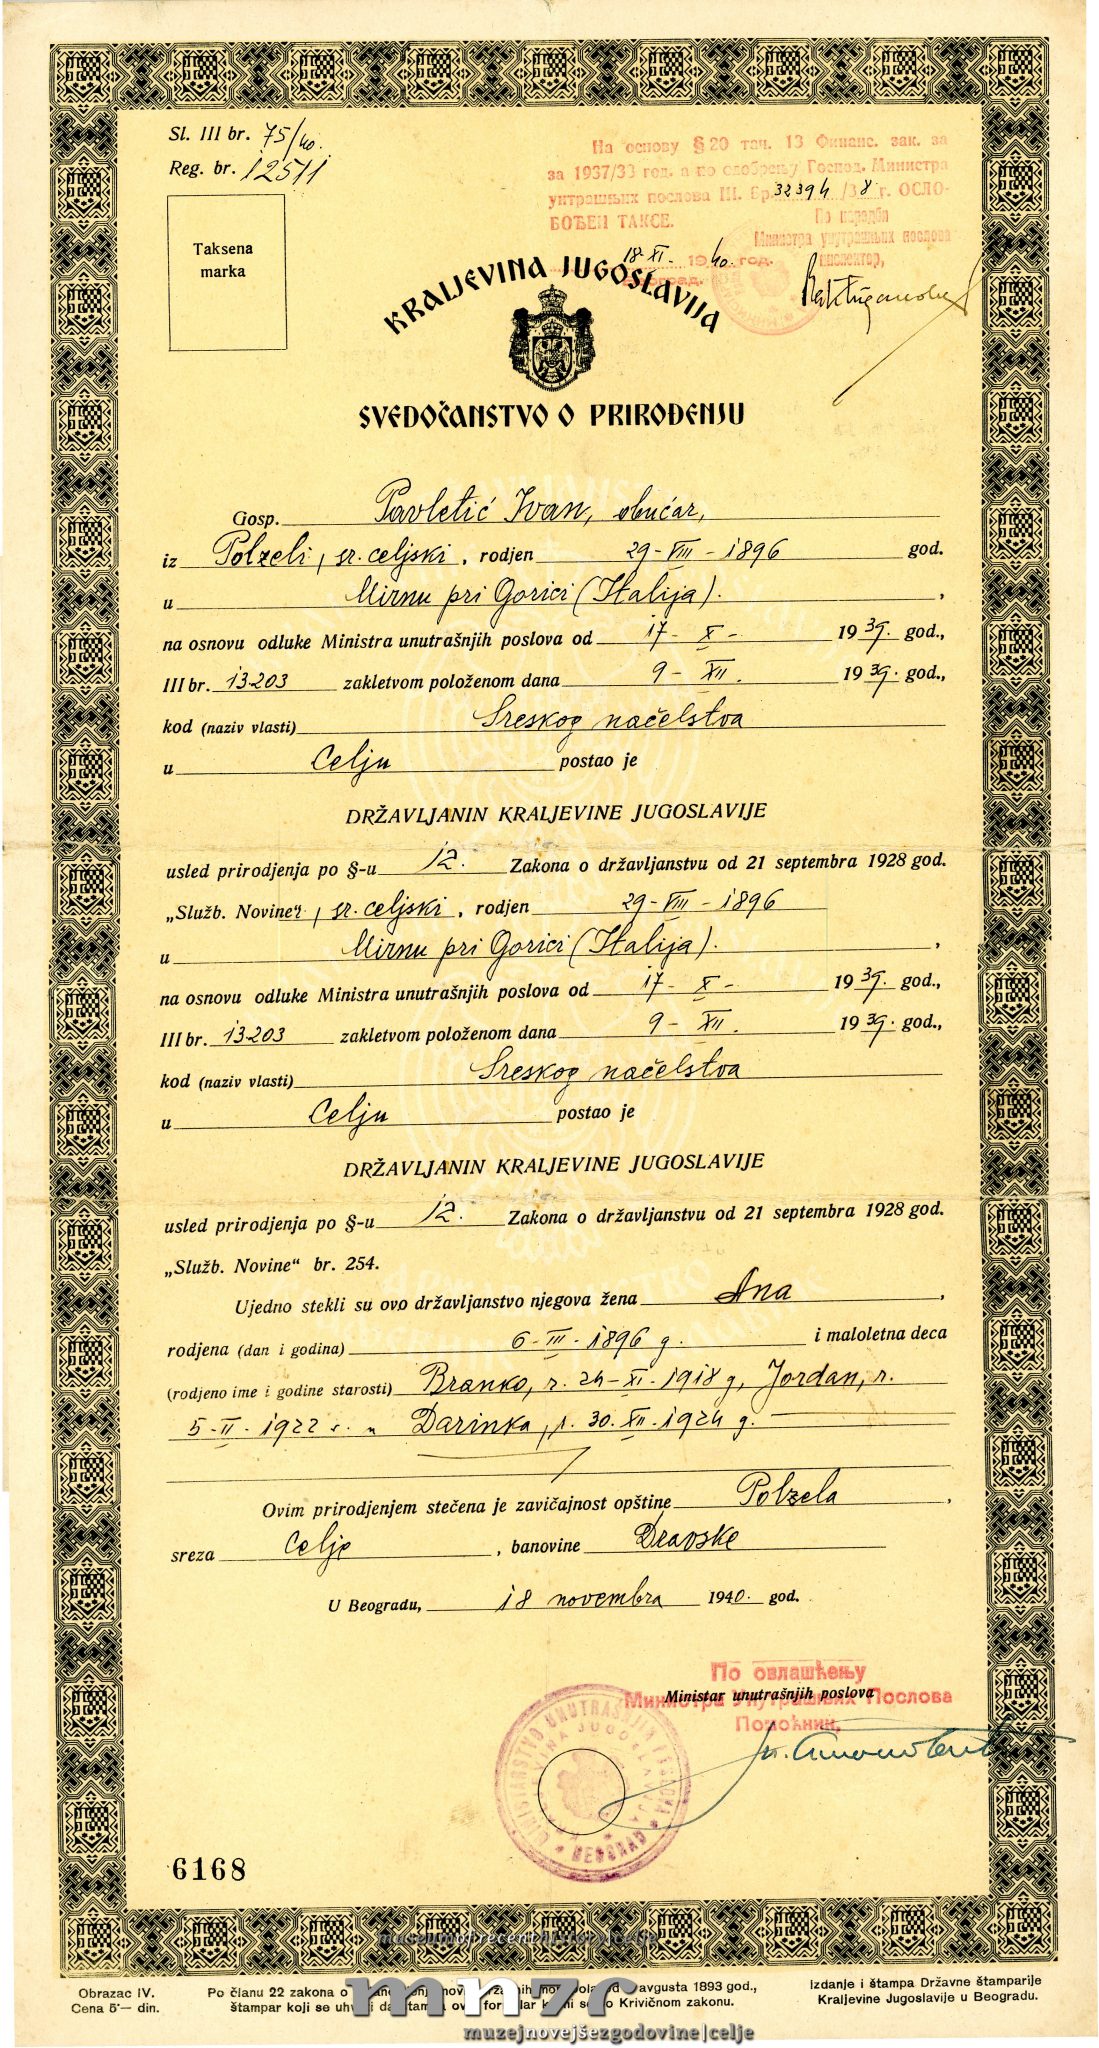 Sl. III br. 75/40.
Reg. br. 12511
Taksena
marka
На основу § 20 тач. 13 Финанс. зак. за
за 1937/33 год. а по одобрењу Господ. Министра
унтрашњих послова III. Бр. 32394/38 г. ОСЛО-
БОЂЕН ТАКСЕ.
По наредби
Министра унутрашњих послова
18-XI- 1940. год.
Београд.
KRALJEVINA JUGOSLAVIJA
SVEDOČANSTVO O PRIROĐENJU
Gosp. Pavletić Ivan, obućar,
iz Polzeli, sr. celjski, rodjen 29-VIII-1896 god.
u Mirnu pri Gorici (Italija). ,
na osnovu odluke Ministra unutrašnjih poslova od 17-X- 1939. god.,
III br. 13203 zakletvom položenom dana 9-XII. 1939. god.,
kod (naziv vlasti) Sreskog načelstva
u Celju postao je
DRŽAVLJANIN KRALJEVINE JUGOSLAVIJE
usled prirodjenja po §-u 12. Zakona o državljanstvu od 21 septembra 1928 god.
„Služb. Novine", sr. celjski, rodjen 29-VIII-1896
u Mirnu pri Gorici (Italija). ,
na osnovu odluke Ministra unutrašnjih poslova od 17-X- 1939. god.,
III br. 13203 zakletvom položenom dana 9-XII. 1939. god.,
kod (naziv vlasti) Sreskog načelstva
u Celju postao je
DRŽAVLJANIN KRALJEVINE JUGOSLAVIJE
usled prirodjenja po §-u 12. Zakona o državljanstvu od 21 septembra 1928 god.
„Služb. Novine“ br. 254.
Ujedno stekli su ovo državljanstvo njegova žena Ana ,
rodjena (dan i godina) 6-III-1896 g. i maloletna deca
(rodjeno ime i godine starosti) Branko, r. 24-XI-1918 g, Jordan, r.
5-II-1922 Darinka, r. 30.XII.1924 g.
Ovim prirodjenjem stečena je zavičajnost opštine Polzela ,
sreza Celje , banovine Dravske
U Beogradu, 18 novembra 1940. god.
По овлашћењу
Министра Унутрашњих Послова
Ministar unutrašnjih poslova
Помоћник,
MINISTARSTVO UNUTRAŠNJIH POSLOVA
KRALJEVINA JUGOSLAVIJA
BEOGRAD
6168
museumofrecenthistorycelje
mnzc
Obrazac IV.
Cena 5·— din.
Po članu 22 zakona o avgusta 1893 god.,
štampar koji se Krivičnom zakonu.
Izdanje i štampa Državne štamparije
Kraljevine Jugoslavije u Beogradu.
muzejnovejšezgodovine|celje